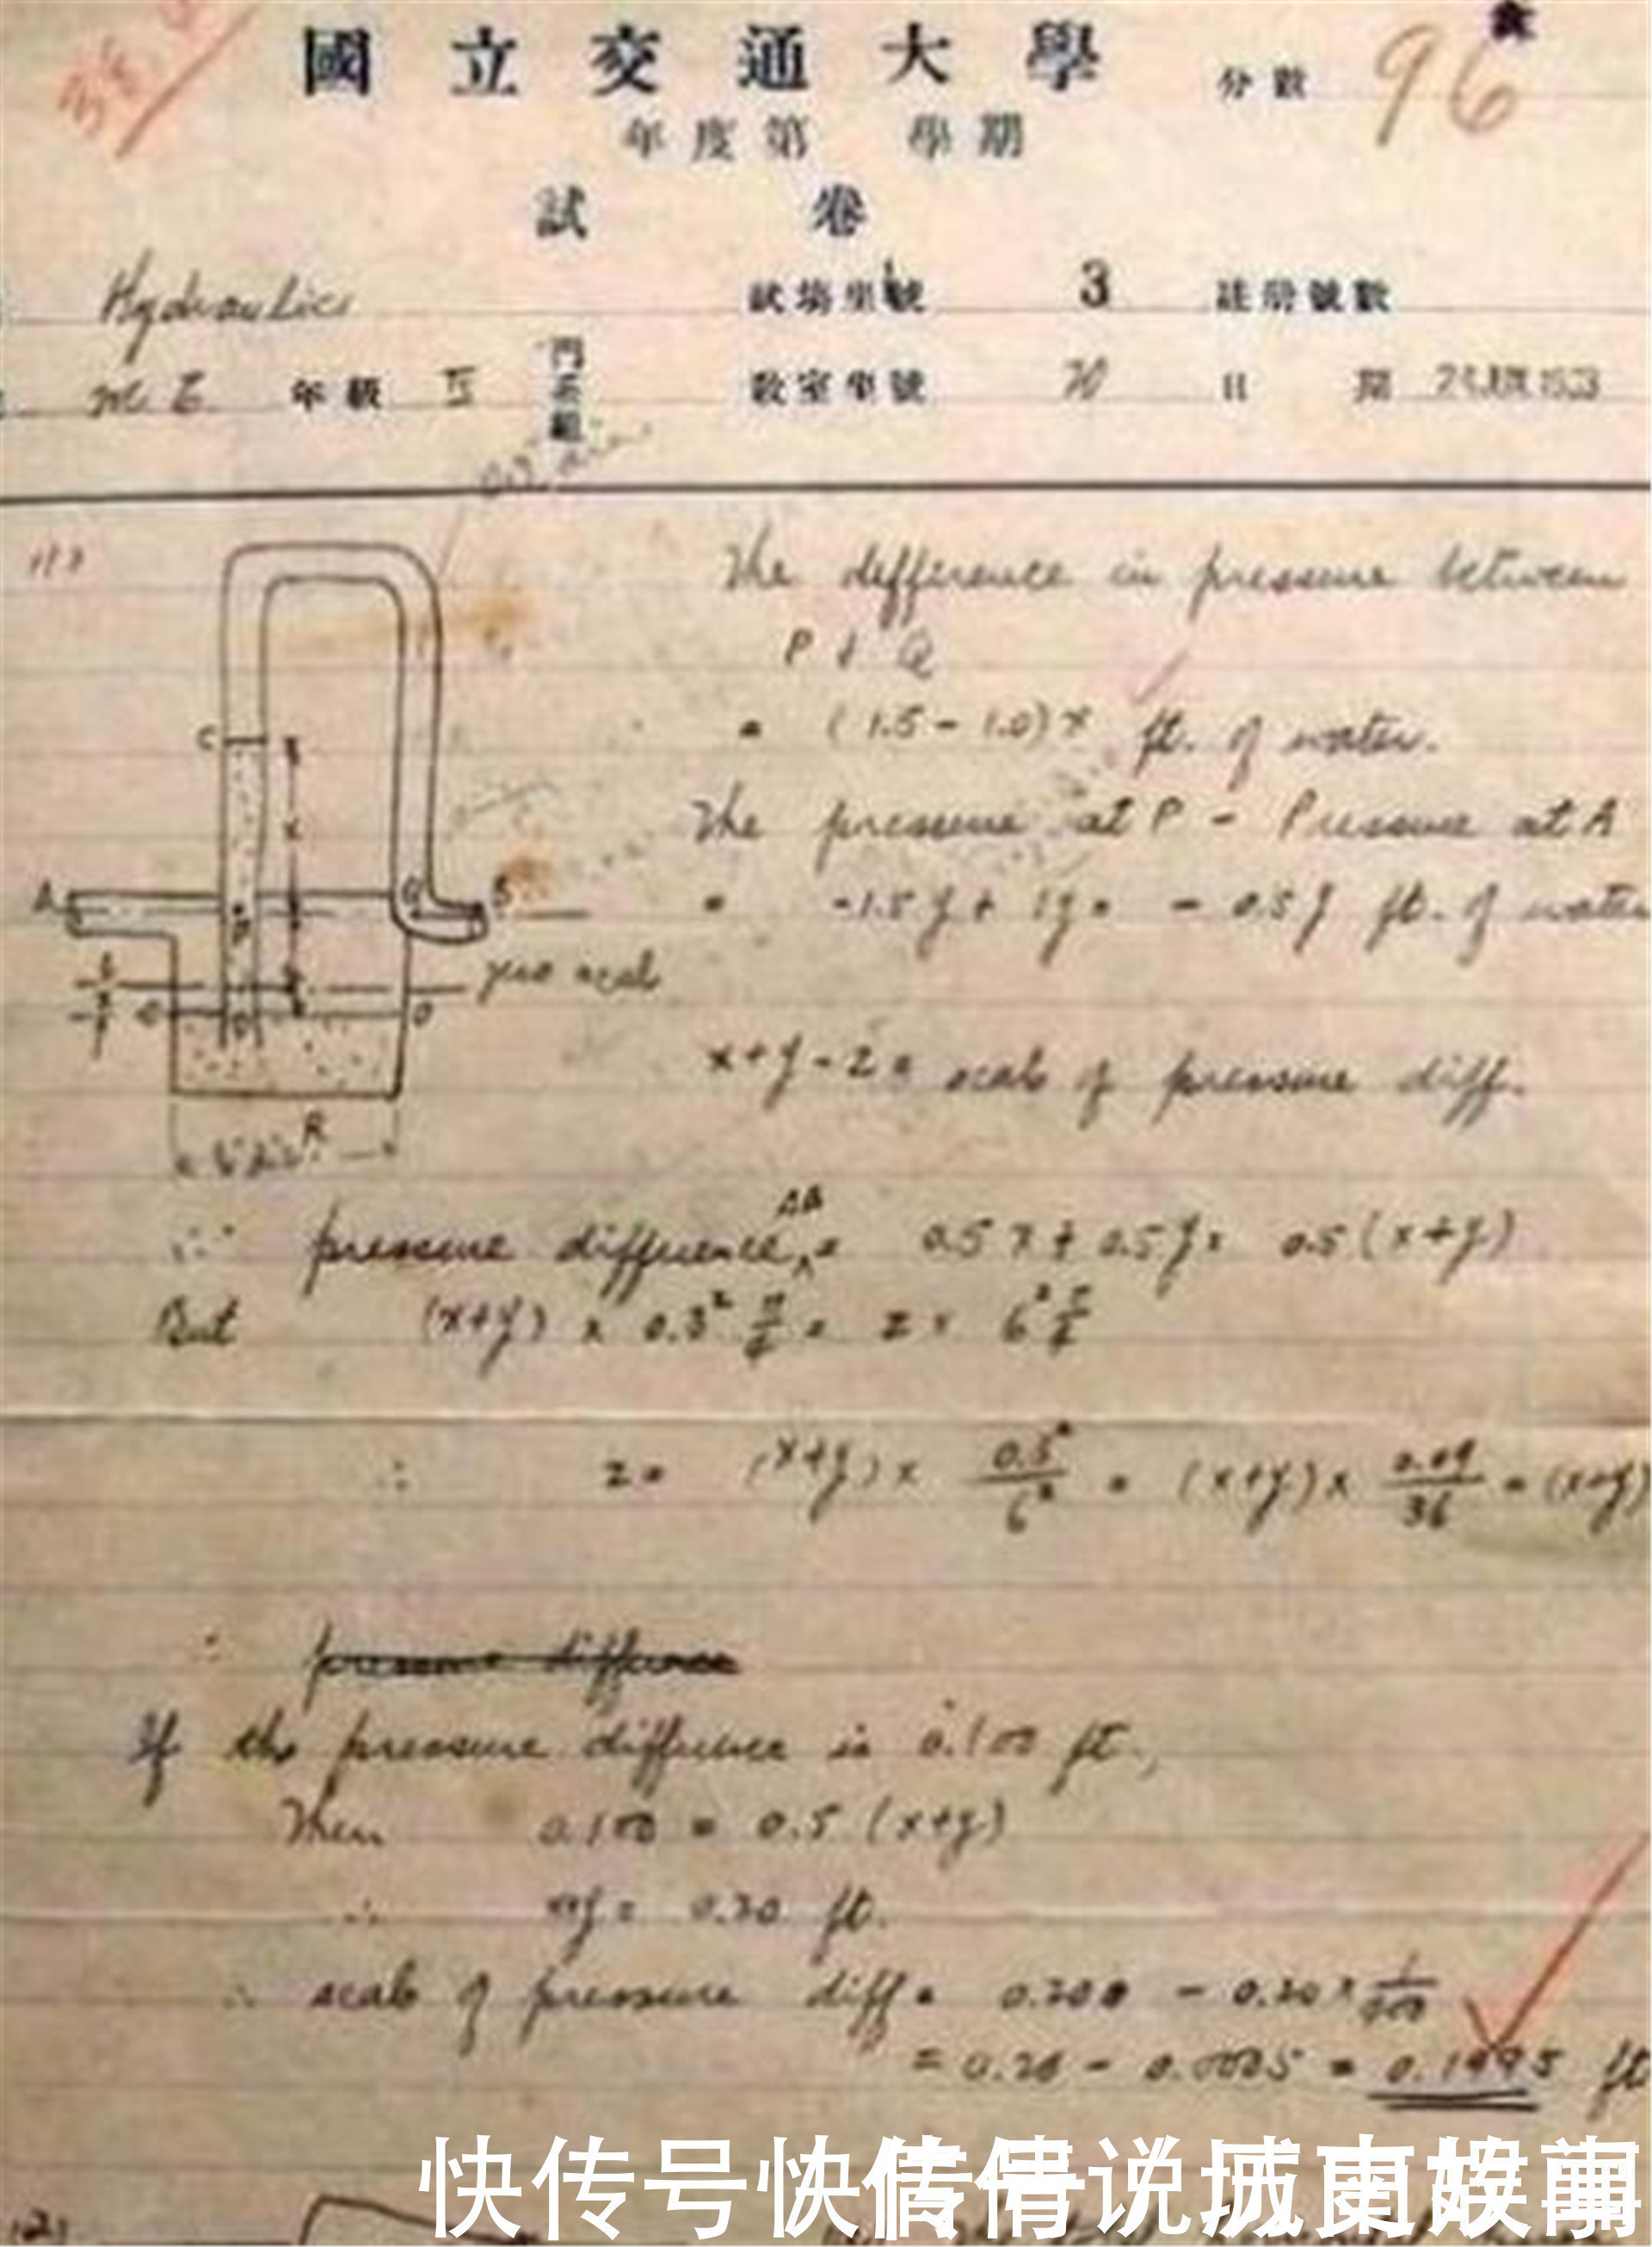 國立交通大學
分數 96
年度第 學期
試卷
Hydraulics 試場坐號 3 註册號數
M E 年級 II 門系組 教室坐號 日期
The difference in pressure between
P & Q
= (1.5 - 1.0) x ft. of water.
C
x
The pressure at P - Pressure at A
= -1.5 y + 1y = - 0.5 y ft. of water
A P Q B
zero scale
O O
x + y - z = scale of pressure diff.
R
∴ pressure difference AB = 0.5 x + 0.5 y = 0.5 (x + y)
But (x+y) x 0.3² π/4 = z x 6² π/4
∴ z = (x+y) x 0.3²/6² = (x+y) x 0.09/36 = (x+y)
∴ pressure difference
If the pressure difference is 0.100 ft.,
Then 0.100 = 0.5 (x+y)
∴ x+y = 0.20 ft.
∴ scale of pressure diff = 0.200 - 0.20 x 1/400
= 0.20 - 0.0005 = 0.1995 ft
快传号
(2)